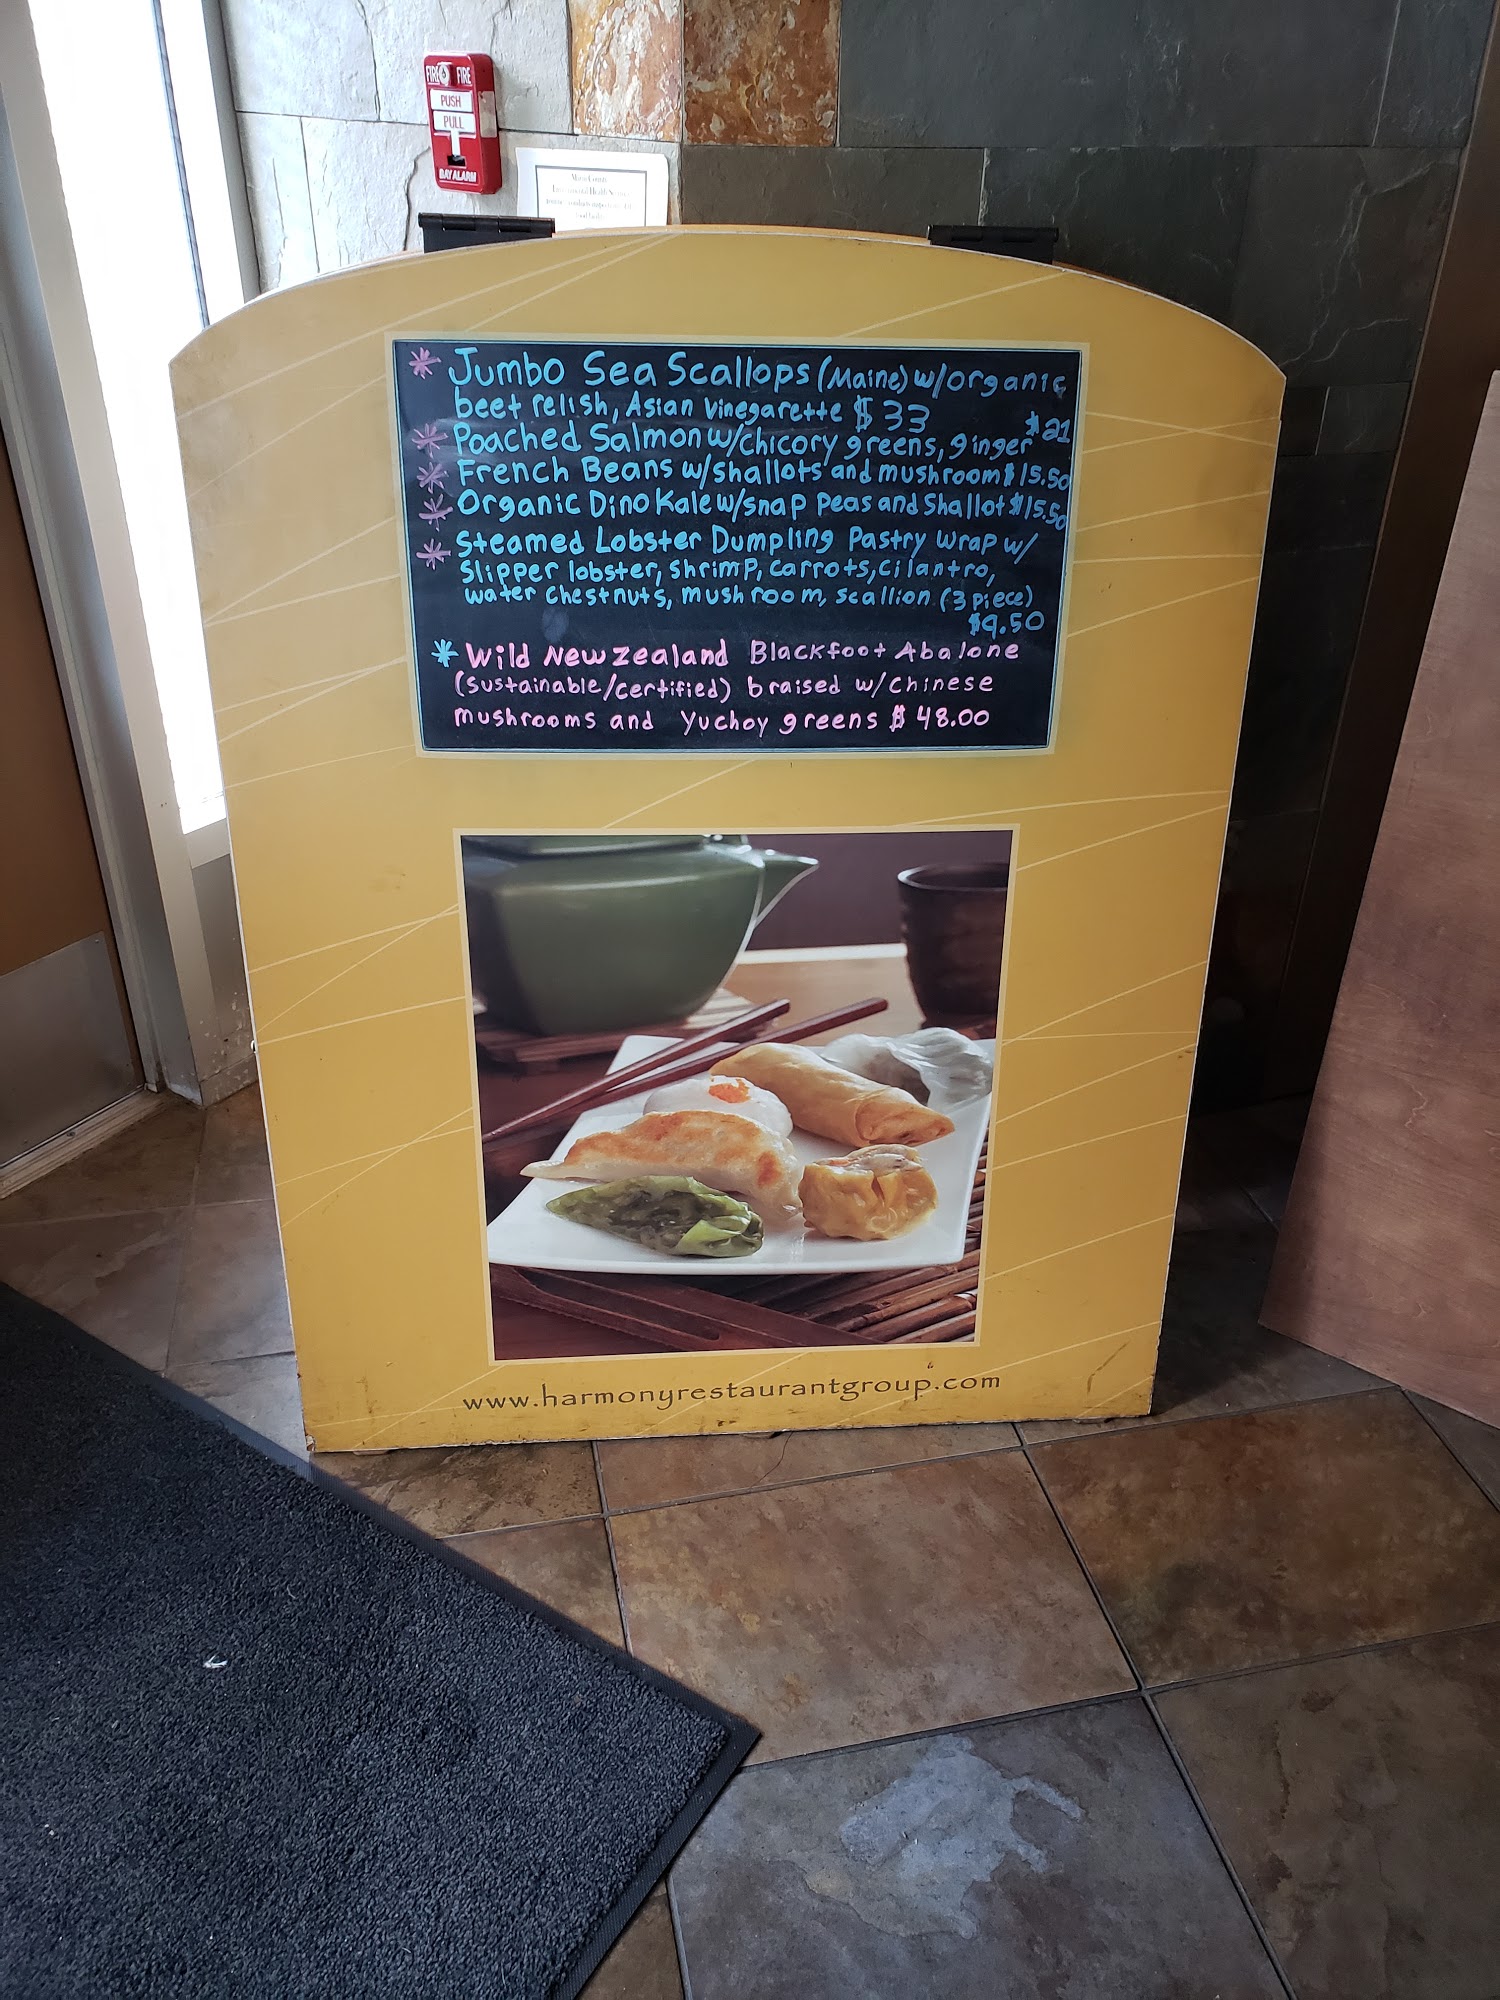 FIRE FIRE
PUSH
PULL
BAY ALARM
Marin County
Environmental Health Services
* Jumbo Sea Scallops (Maine) w/organic
beet relish, Asian vinegarette $33
* Poached Salmon w/chicory greens, ginger $21
* French Beans w/shallots and mushroom $15.50
* Organic Dino Kale w/snap peas and Shallot $15.50
* Steamed Lobster Dumpling Pastry wrap w/
slipper lobster, shrimp, carrots, cilantro,
water chestnuts, mushroom, scallion (3 piece)
$9.50
* Wild New Zealand Blackfoot Abalone
(sustainable/certified) braised w/Chinese
mushrooms and Yuchoy greens $48.00
www.harmonyrestaurantgroup.com